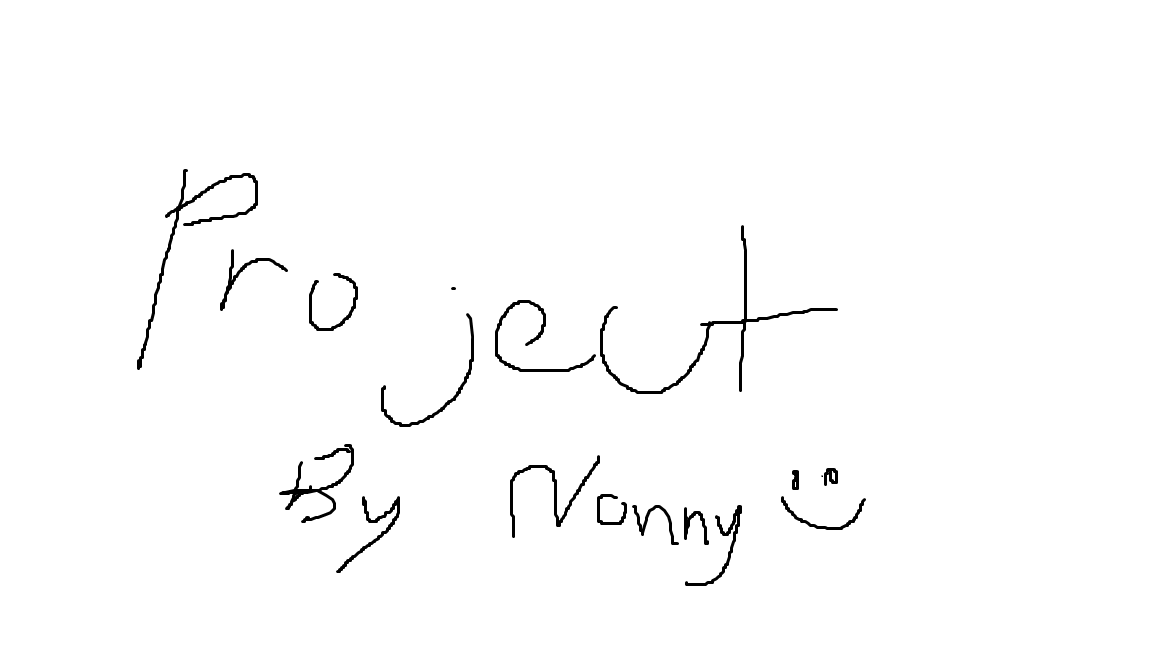 Project
By Nonny